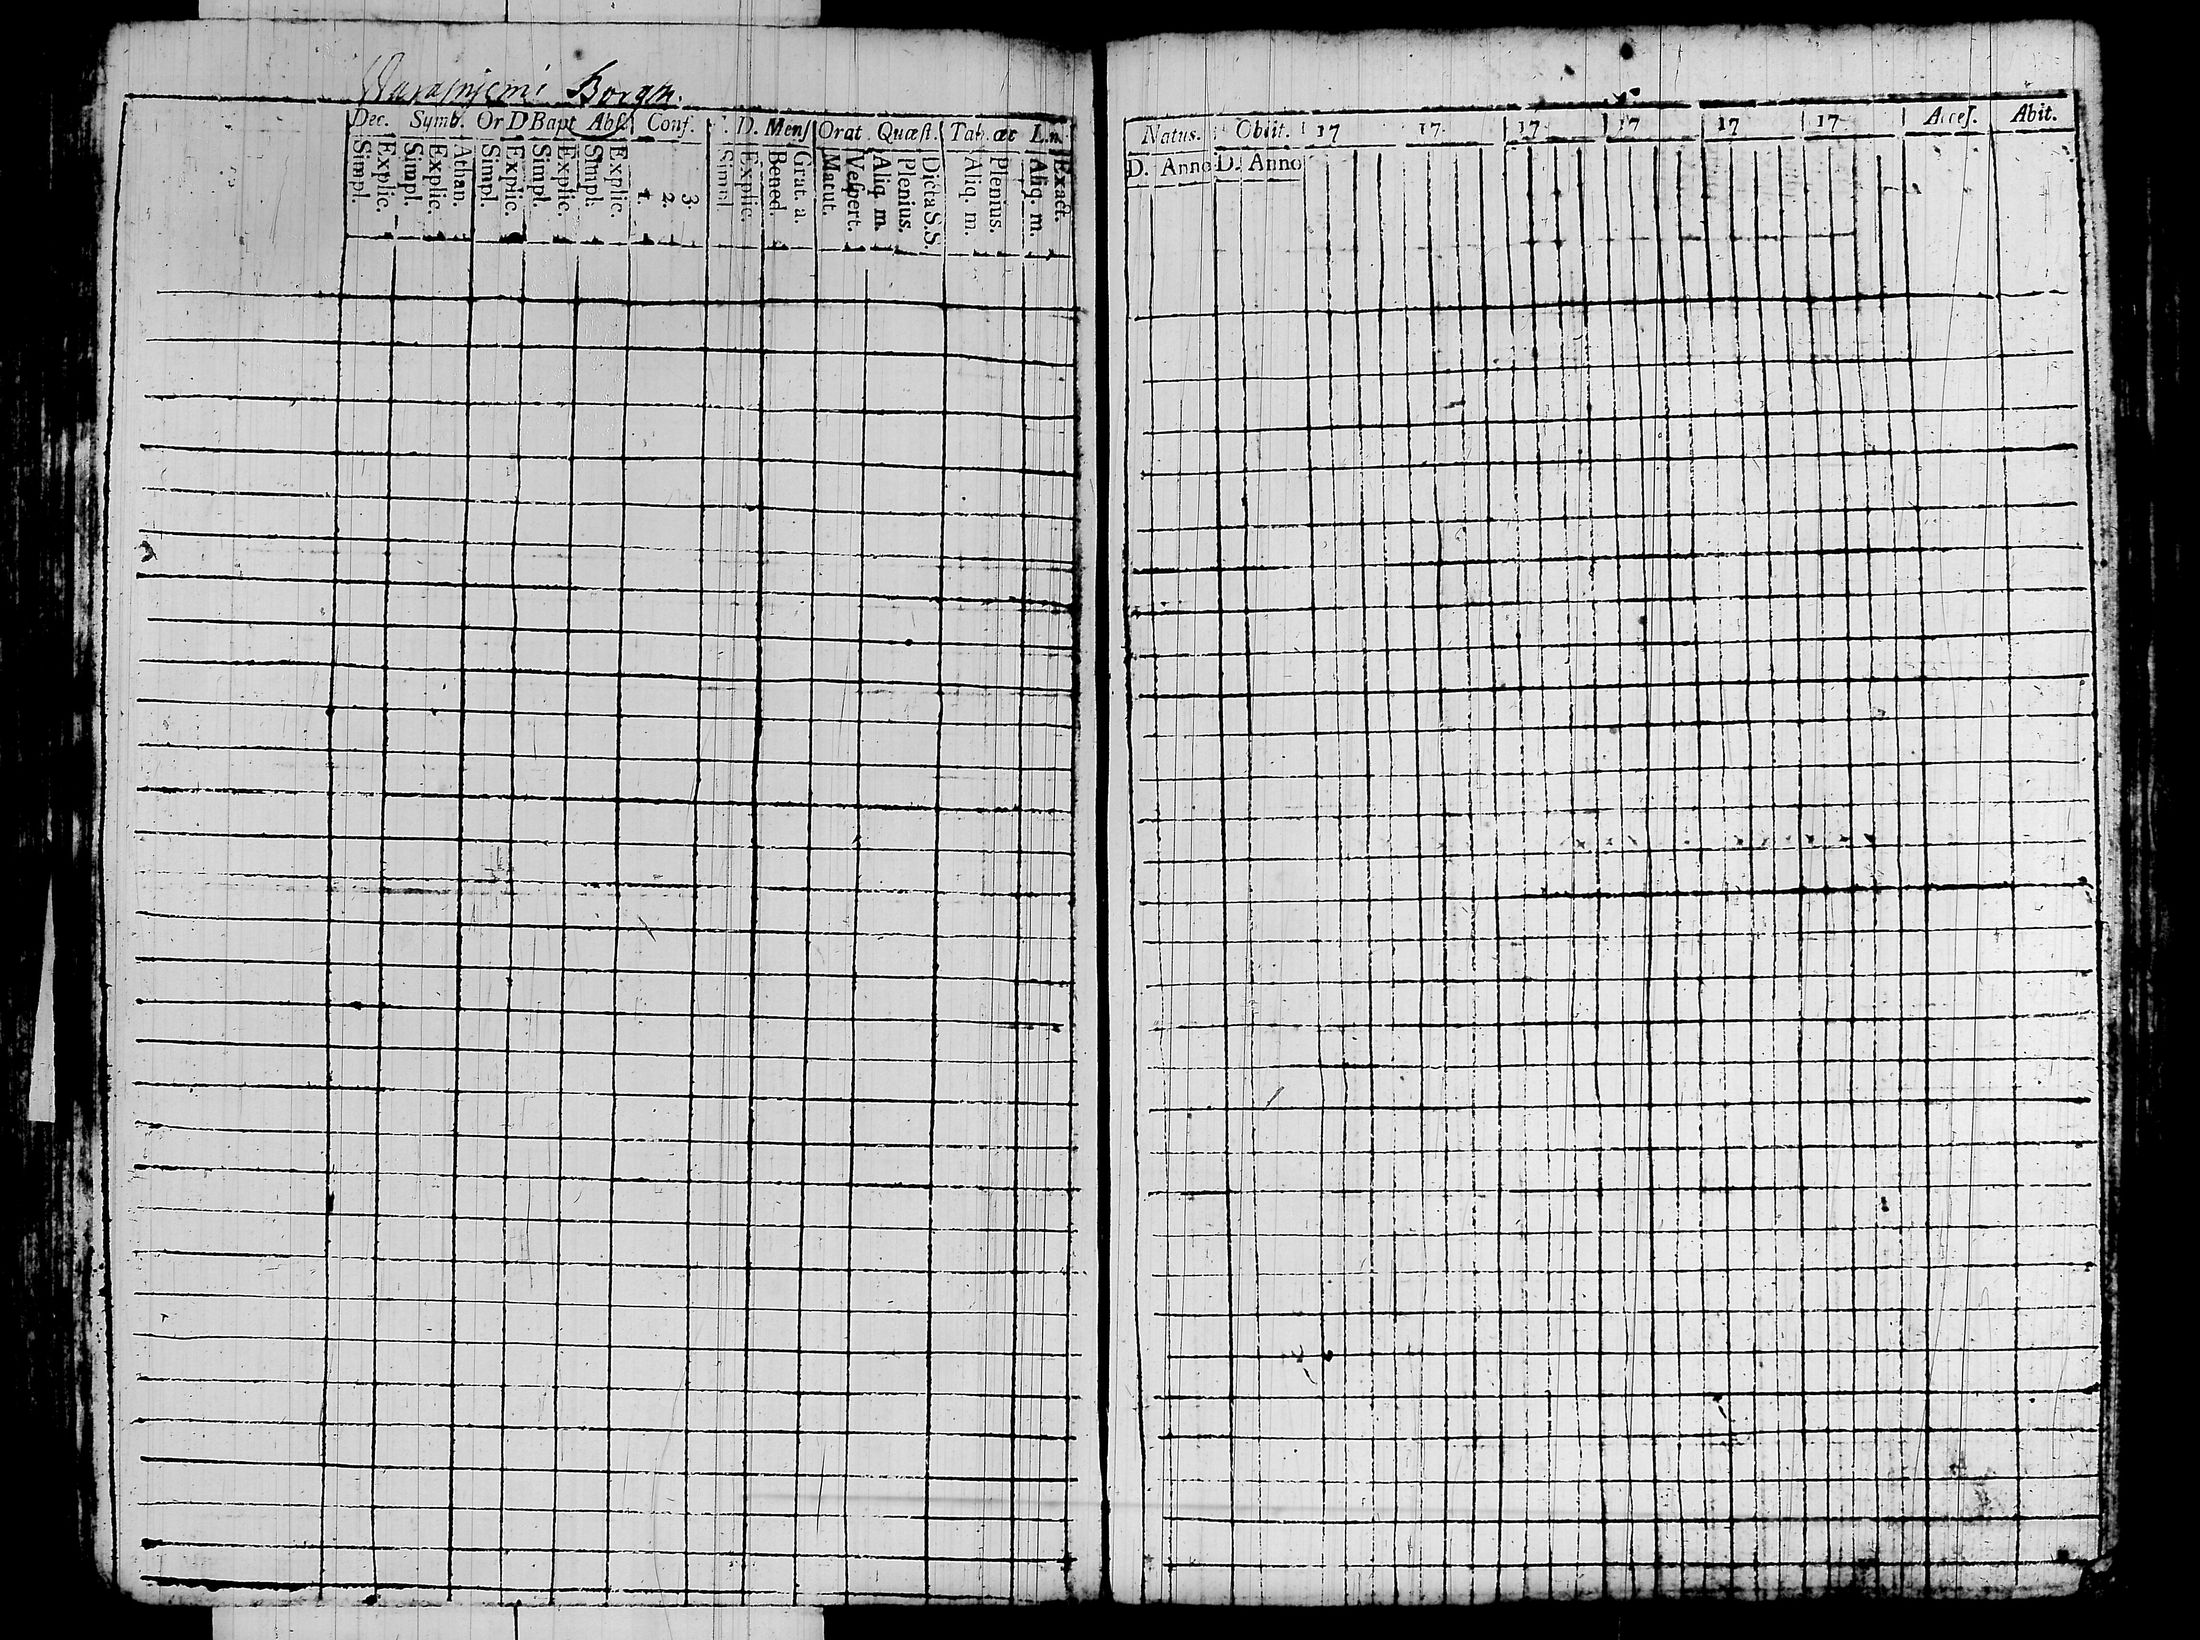 Varajsniemi Borgm.
Dec. Symb. Or D Bapt Abſ. Conf. C. D. Menſ Orat. Quæſt. Tab. œc L.n.
Simpl. Explic. Simpl. Explic. Athan. Simpl. Explic. Simpl. Explic. Simpl. Explic. 1. 2. 3. Simpl. Explic. Bened. Grat. a. Matut. Veſpert. Aliq. m. Plenius. Dicta S.S. Aliq. m. Plenius. Aliq. m. Exact.
Natus. Obiit. 17 17. 17 17 17 17 Acceſ. Abit.
D. Anno D. Anno